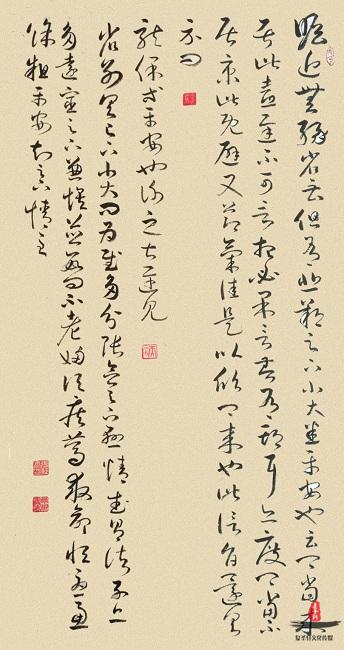 瞻近無緣省苦但有悲歎足下小大悉平安也云卿當來
居此喜遲不可言想必果言苦有期耳亦度卿當不
居京此既避又節氣佳是以欣卿來也此信旨還具
示問
龍保等平安也謝之甚遲見
省別具足下小大問為慰多分張念足下懸情武昌諸子亦
多遠宦足下兼懷並數問不老婦頃疾篤救命恒憂慮
餘粗平安知足下情至
文化传媒